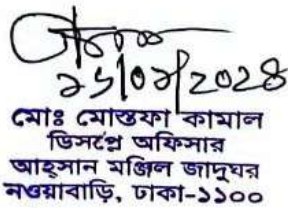 মোঃ মোস্তফা কামাল
ডিসপ্লে অফিসার
আহ্সান মঞ্জিল জাদুঘর
নওয়াবাড়ি, ঢাকা-১১০০